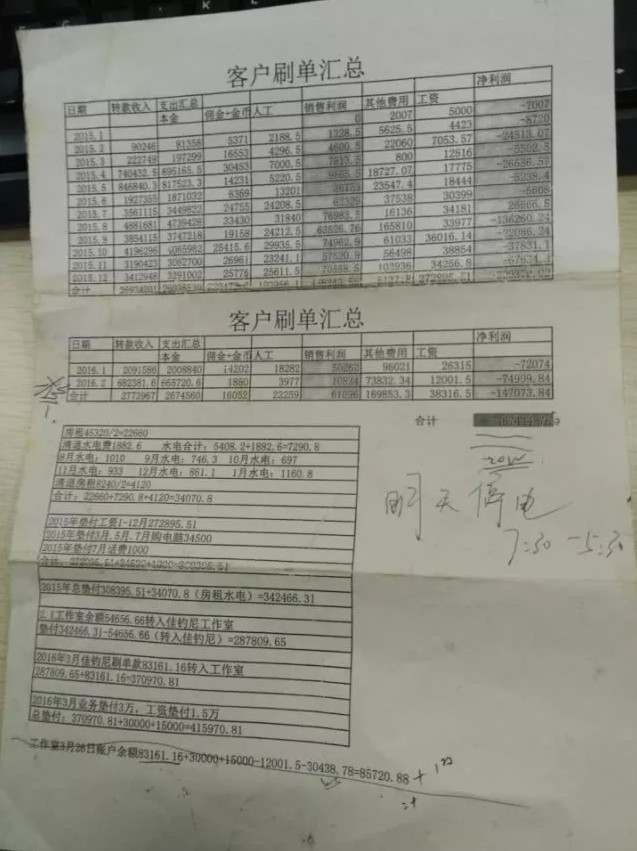 客户刷单汇总
日期 转款收入 支出汇总本金 佣金+金币 人工 销售利润 其他费用 工资 净利润
2015.1 0 2007 5000 -7007
2015.2 90246 81358 5371 2188.5 1328.5 5625.5 4423 -8720
2015.3 222749 197299 16553 4296.5 4600.5 22060 7053.57 -24513.07
2015.4 740432.5 695165.5 30453 7000.5 7813.5 800 12516 -5502.5
2015.5 846840.3 817523.3 14231 5220.5 18727.07 17775
2015.6 1927355 1871032 6369 13201 23547.4 18444 -5238.4
2015.7 3561115 3449822 24755 24208.5 62329 37538 30399 -5608
2015.8 4881681 4739428 33430 31840 76983.5 16136 34181 26666.5
2015.9 3854115 3747218 19158 24212.5 63526.76 165810 33977 -136260.24
2015.10 4196296 4065982 25415.6 29935.5 74962.9 61033 36016.14 -22086.24
2015.11 3190423 3062700 26961 23241.1 57520.9 56498 38854 -37831.1
2015.12 3412948 3291002 25776 25611.5 70558.5 103936 34256.8 -67634.3
合计
客户刷单汇总
日期 转款收入 支出汇总本金 佣金+金币 人工 销售利润 其他费用 工资 净利润
2016.1 2091586 2008840 14202 18282 50262 96021 26315 -72074
2016.2 682381.6 665720.6 1850 3977 10834 73832.34 12001.5 -74999.84
合计 2773967 2674560 16052 22259 61096 169853.3 38316.5 -147073.84
合计
房租45320/2=22660
清道水电费1882.6 水电合计：5408.2+1882.6=7290.8
8月水电：1010 9月水电：746.3 10月水电：697
11月水电：933 12月水电：861.1 1月水电：1160.8
清道房租8240/2=4120
合计：22660+7290.8+4120=34070.8
2015年垫付工资1-12月272895.51
2015年垫付3月.5月.7月购电脑34500
2015年垫付7月话费1000
2015年总垫付308395.51+34070.8（房租水电）=342466.31
2.1工作室余额54656.66转入佳钓尼工作室
垫付342466.31-54656.66（转入佳钓尼）=287809.65
2016年3月佳钓尼刷单款83161.16转入工作室
287809.65+83161.16=370970.81
2016年3月业务垫付3万，工资垫付1.5万
总垫付：370970.81+30000+15000=415970.81
工作室3月28日账户余额83161.16+30000+15000-12001.5-30438.78=85720.88
明天停电
7:30-5:30